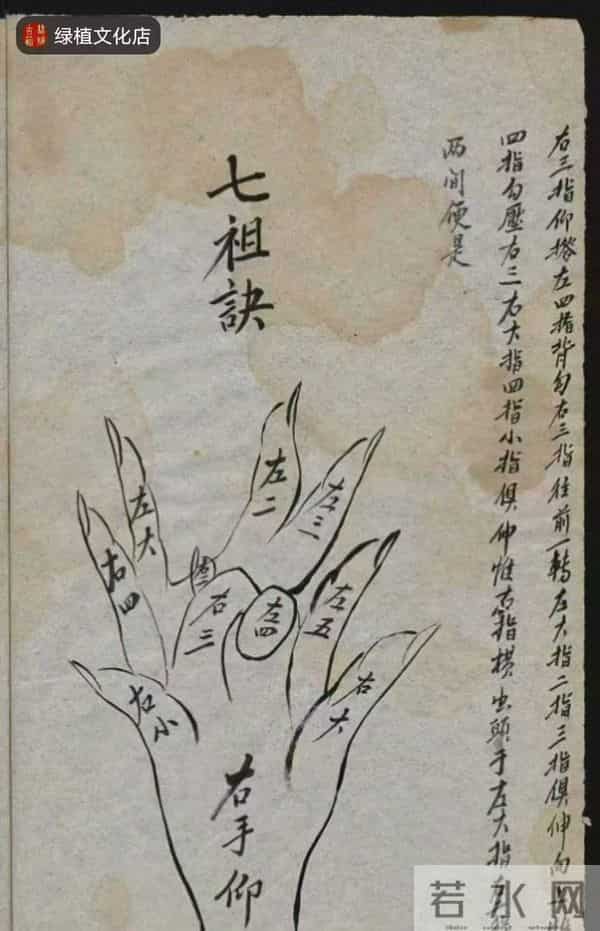 绿植文化店
右三指仰搭左四指背勾右三指往前一轉左大指二指三指俱伸向
四指勾壓右三右大指四指小指俱伸惟右 指横出頭于左大指
两间便是
七祖訣
左大
右四
左二
左三
右三
左四
左五
右小
右大
右手仰
若水网